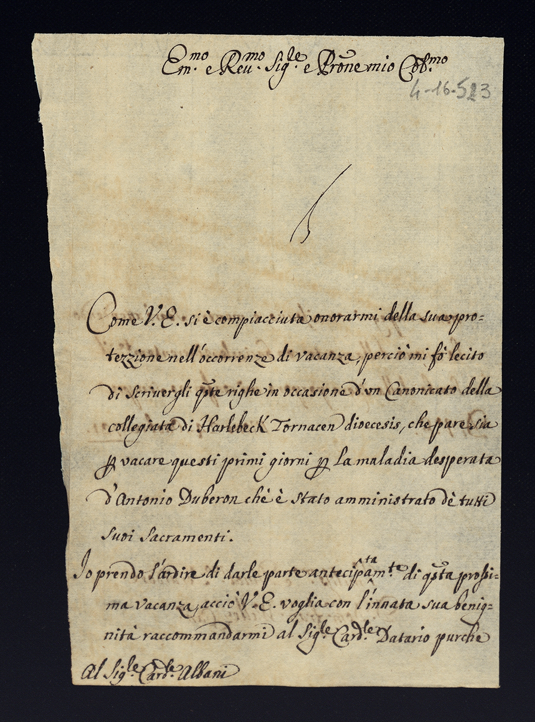 Em.mo e Reu.mo Sig.le e Prone mio Col.mo
4-16-523
Come V. E. si è compiacciuta onorarmi della sua pro-
tezzione nell'occorrenze di vacanza, perciò mi fò lecito
di scrivergli qste righe in occasione d'vn Canonicato della
collegiata di Harlebeck Tornacen dioecesis, che pare sia
p vacare questi primi giorni p la maladia desperata
d'Antonio Duberon chè è stato amministrato dè tutti
suoi sacramenti.
Io prendo l'ardire di darle parte antecipatam.te di qsta prossi-
ma vacanza, acciò V. E. voglia con l'innata sua benig-
nità raccommandarmi al Sig.le Card.le Datario purche
Al Sig.le Card.le Albani